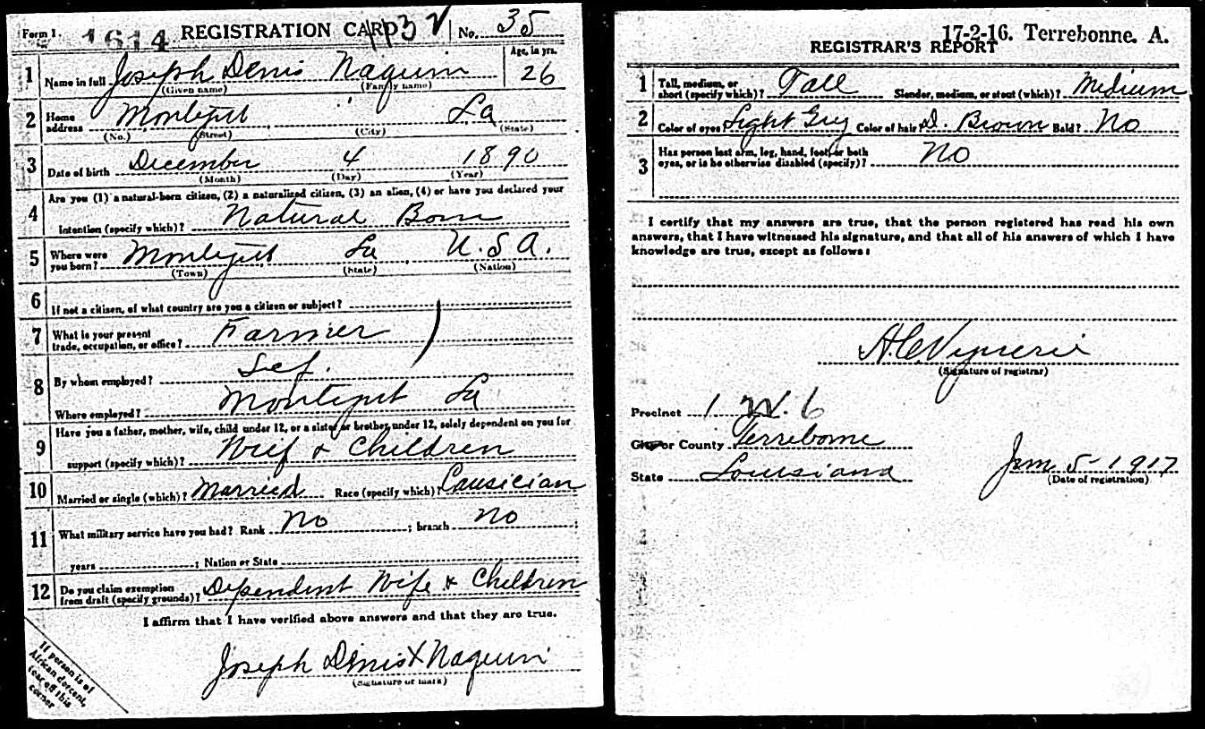 Form 1. 1614 REGISTRATION CARD 113 V No. 35
1 Name in full Joseph Denis Naquin Age, in yrs. 26
(Given name) (Family name)
2 Home address Montegut " La
(No.) (Street) (City) (State)
3 Date of birth December 4 1890
(Month) (Day) (Year)
4 Are you (1) a natural-born citizen, (2) a naturalized citizen, (3) an alien, (4) or have you declared your
intention (specify which)? Natural Born
5 Where were you born? Montegut La U.S.A.
(Town) (State) (Nation)
6 If not a citizen, of what country are you a citizen or subject?
7 What is your present trade, occupation, or office? Farmer
8 By whom employed? Sef.
Where employed? Montegut La
9 Have you a father, mother, wife, child under 12, or a sister or brother under 12, solely dependent on you for
support (specify which)? Wief & Children
10 Married or single (which)? Married Race (specify which)? Causician
11 What military service have you had? Rank No ; branch No ;
years ; Nation or State
12 Do you claim exemption from draft (specify grounds)? Dependent Wife & Children
I affirm that I have verified above answers and that they are true.
Joseph Denis X Naquin
(Signature or mark)
If person is of
African descent,
tear off this
corner
17-2-16. Terrebonne. A.
REGISTRAR'S REPORT
1 Tall, medium, or short (specify which)? Tall Slender, medium, or stout (which)? Medium
2 Color of eyes Light Grey Color of hair D. Brown Bald? No
3 Has person lost arm, leg, hand, foot, or both eyes, or is he otherwise disabled (specify)? No
I certify that my answers are true, that the person registered has read his own
answers, that I have witnessed his signature, and that all of his answers of which I have
knowledge are true, except as follows:
(Signature of registrar)
Precinct 1 W. 6
City or County Terrebonne
State Louisiana
Jun 5-1917
(Date of registration)